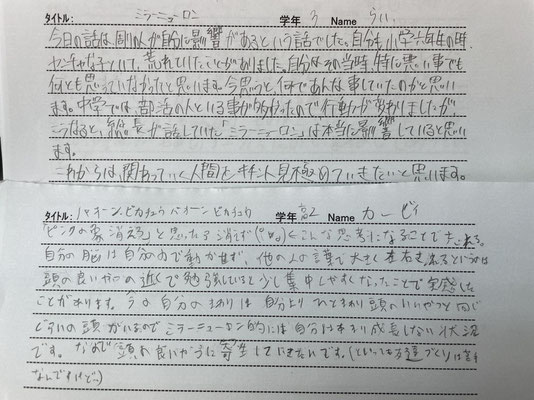 タイトル: ミラーニューロン 学年 3 Name らい
今日の話は周りの人が自分に影響があるという話でした。自分も小学六年生の時
ヤンチャな子といて、荒れていたことがありました。自分はその当時特に悪い事でも
何とも思っていなかったと思います。今思うと何であんな事していたのかと思い
ます。中学では、部活の人といる事が多かったので行動が変わりましたが
こうなると、総長が話していた「ミラーニューロン」は本当に影響していると思い
ます。
これからは、関わっていく人間をキチンと見極めていきたいと思います。
タイトル: シャキーン、ピカチュウ バキーン ピカチュウ 学年 高2 Name カービィ
「ピンクの象消えろ」と思ったら消せず ←こんな思考になることで
自分の脳は自分の力で動かせず、他の人の言葉で大きく左右されるというのは
頭の良いやつの近くで勉強していると少し集中しやすくなったことで実感した
ことがあります。今の自分のまわりは自分よりひとまわり頭のいいやつと同じ
ぐらいの頭がいるのでミラーニューロン的には自分はあまり成長しない状況
です。なので頭の良いやつに寄生していきたいです。(といっても友達づくりは苦手
なんですけどっ)